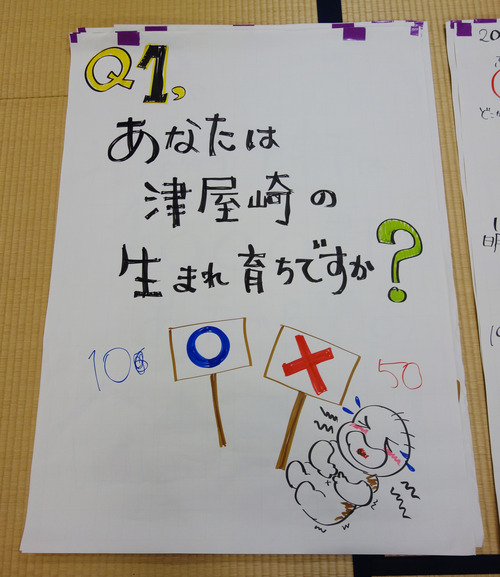 Q1,
あなたは
津屋崎の
生まれ育ちですか?
10
50
20
どこか
明